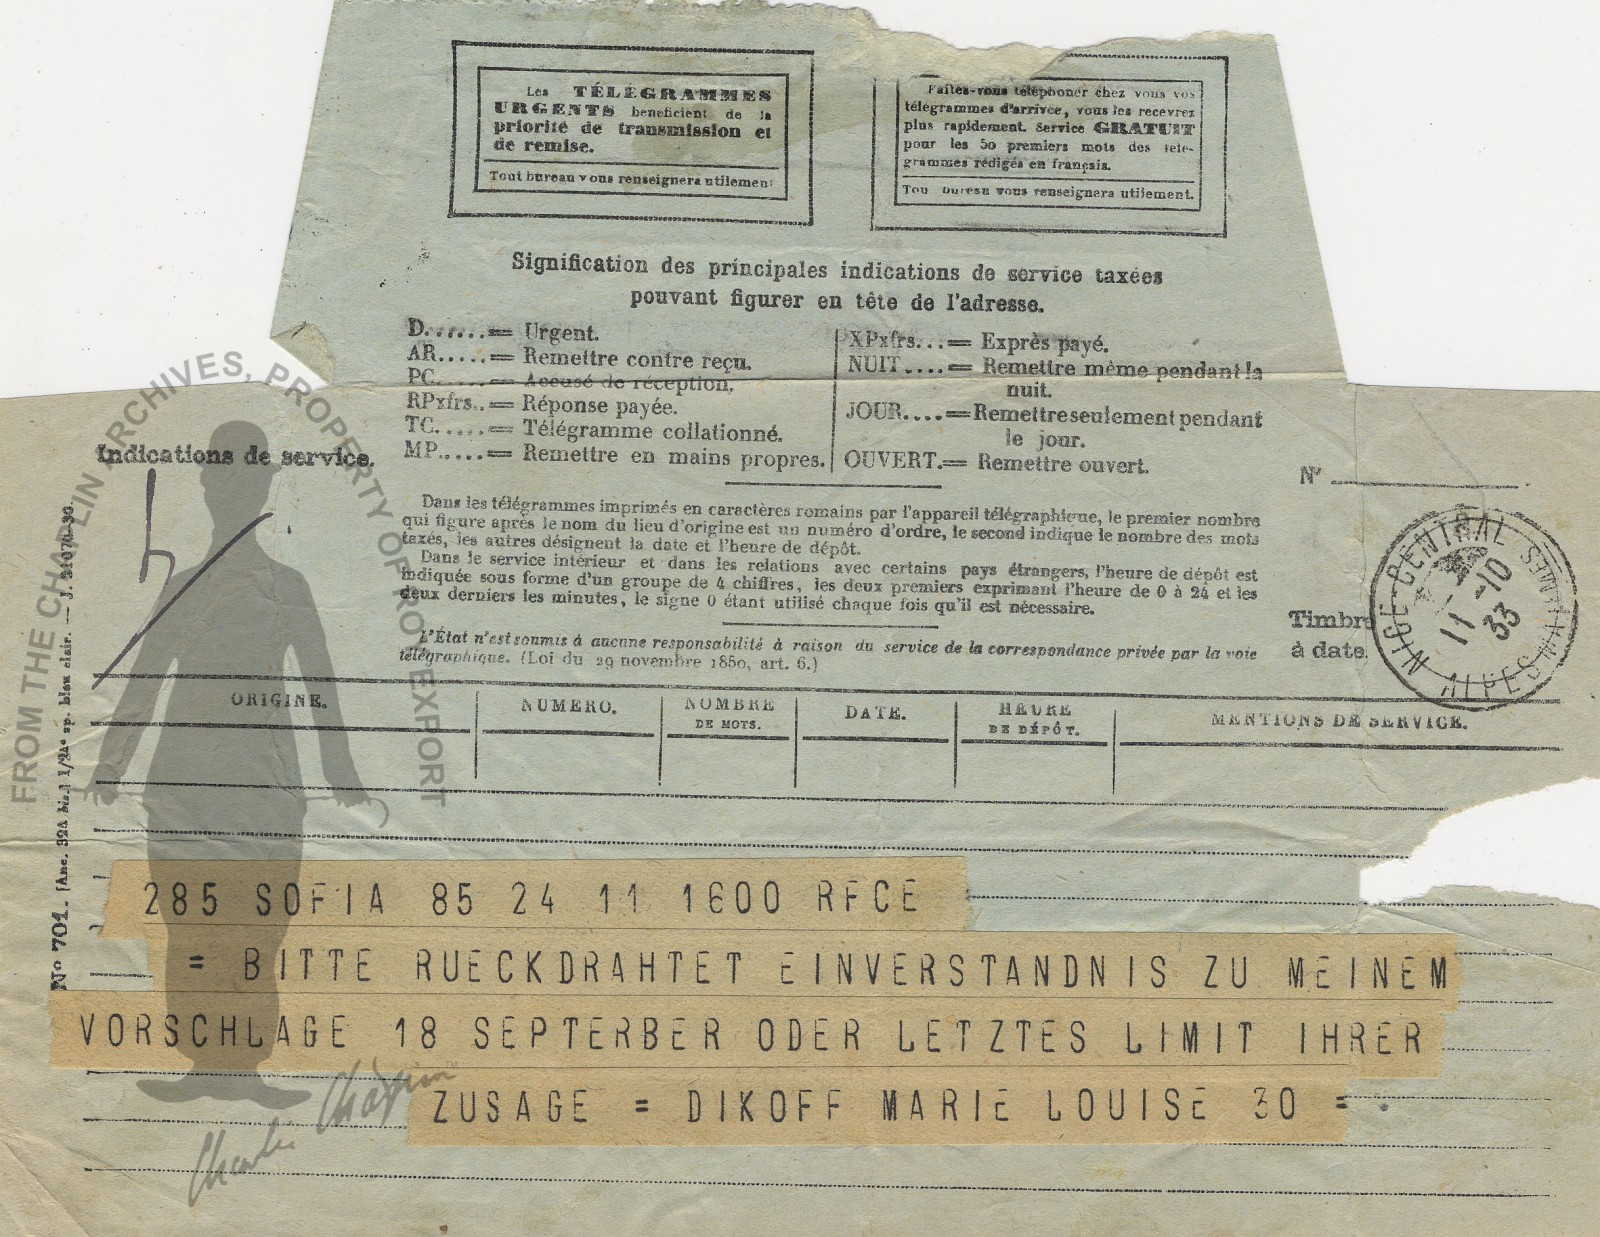 Les TÉLÉGRAMMES
URGENTS beneficient de la
priorité de transmission et
de remise.
Tout bureau vous renseignera utilement
Faites-vous téléphoner chez vous vos
télégrammes d'arrivée, vous les recevrez
plus rapidement. Service GRATUIT
pour les 50 premiers mots des télé-
grammes rédigés en français.
Tou bureau vous renseignera utilement.
Signification des principales indications de service taxées
pouvant figurer en tête de l'adresse.
D.......= Urgent.
AR.....= Remettre contre reçu.
PC......= Accusé de réception.
RPxfrs..= Réponse payée.
TC......= Télégramme collationné.
MP.....= Remettre en mains propres.
XPxfrs...= Exprès payé.
NUIT....= Remettre même pendant la
nuit.
JOUR....= Remettre seulement pendant
le jour.
OUVERT.= Remettre ouvert.
Indications de service.
N°
Dans les télégrammes imprimés en caractères romains par l'appareil télégraphique, le premier nombre
qui figure après le nom du lieu d'origine est un numéro d'ordre, le second indique le nombre des mots
taxés, les autres désignent la date et l'heure de dépôt.
Dans le service intérieur et dans les relations avec certains pays étrangers, l'heure de dépôt est
indiquée sous forme d'un groupe de 4 chiffres, les deux premiers exprimant l'heure de 0 à 24 et les
deux derniers les minutes, le signe 0 étant utilisé chaque fois qu'il est nécessaire.
L'État n'est soumis à aucune responsabilité à raison du service de la correspondance privée par la voie
télégraphique. (Loi du 29 novembre 1850, art. 6.)
Timbre
à date.
NICE-CENTRAL
11-10
33
ALPES MARITIMES
ORIGINE.
NUMERO.
NOMBRE
DE MOTS.
DATE.
HEURE
DE DÉPÔT.
MENTIONS DE SERVICE.
N° 701. [Anc. 324 bis.] 1/24e sp. bleu clair. — J. 31070-30.
285 SOFIA 85 24 11 1600 RFCE
= BITTE RUECKDRAHTET EINVERSTANDNIS ZU MEINEM
VORSCHLAGE 18 SEPTERBER ODER LETZTES LIMIT IHRER
ZUSAGE = DIKOFF MARIE LOUISE 30 =
FROM THE CHAPLIN ARCHIVES, PROPERTY OF ROY EXPORT
Charles Chaplin